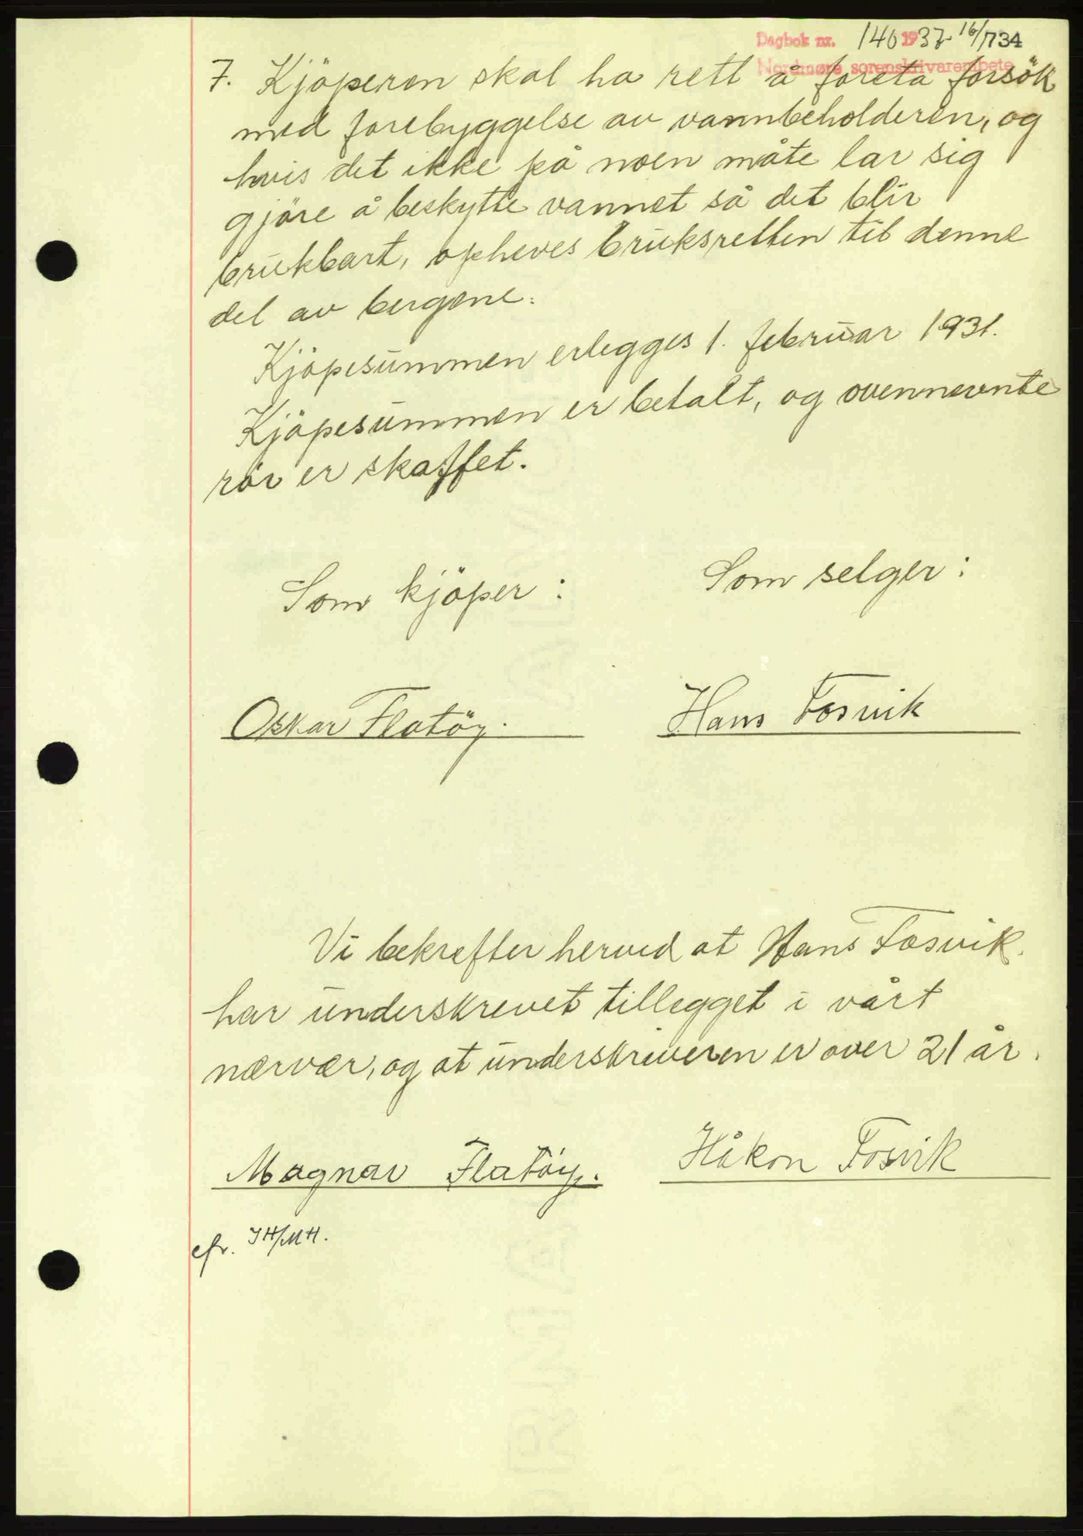 Dagbok nr. 140 1937 16/1 734
Nordmøre sorenskrivarembete
7. Kjöperen skal ha rett å foreta forsök
med forebyggelse av vannbeholderen, og
hvis det ikke på noen måte lar sig
gjöre å beskytte vannet så det blir
brukbart, opheves bruksretten til denne
del av bergene.
Kjöpesummen erlegges 1. februar 1931.
Kjöpesummen er betalt, og ovennevnte
rör er skaffet.
Som kjöper :
Som selger :
Oskar Flatöy.
Hans Fosvik
Vi bekrefter herved at Hans Fosvik.
har underskrevet tillegget i vårt
nærvær, og at underskriveren er over 21 år.
Magnar Flatöy.
Håkon Fosvik
cfr. IH/MH.